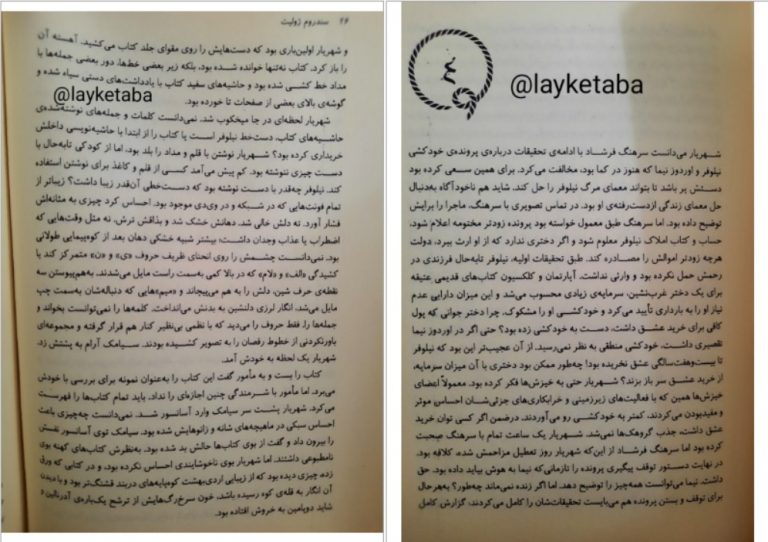 ۴
@layketaba
شهریار می‌دانست سرهنگ فرشاد با ادامه‌ی تحقیقات درباره‌ی پرونده‌ی خودکشی
نیلوفر و اوردوز نیما که هنوز در کما بود، مخالفت می‌کرد. برای همین سعی کرده بود
دستش پر باشد تا بتواند معمای مرگ نیلوفر را حل کند. شاید هم ناخودآگاه به‌دنبال
حل معمای زندگی ازدست‌رفته‌ی او بود. در تماس تصویری با سرهنگ، ماجرا را برایش
توضیح داده بود. اما سرهنگ طبق معمول خواسته بود پرونده زودتر مختومه اعلام شود،
حساب و کتاب املاک نیلوفر معلوم شود و اگر دختری ندارد که از او ارث ببرد، دولت
هرچه زودتر اموالش را مصادره کند. طبق تحقیقات اولیه، نیلوفر تابه‌حال فرزندی در
رحمش حمل نکرده بود و وارثی نداشت. آپارتمان و کلکسیون کتاب‌های قدیمی عتیقه
برای یک دختر غرب‌نشین، سرمایه‌ی زیادی محسوب می‌شد و این میزان دارایی عدم
نیاز او را به بارداری تأیید می‌کرد و خودکشی او را مشکوک. چرا دختر جوانی که پول
کافی برای خرید عشق داشت، دست به خودکشی زده بود؟ حتی اگر در اوردوز نیما
تقصیری داشت، خودکشی منطقی به نظر نمی‌رسید. از آن عجیب‌تر این بود که نیلوفر
تا بیست‌وهفت‌سالگی عشق نخریده بود! چه‌طور ممکن بود دختری با آن میزان سرمایه،
از خرید عشق سر باز بزند؟ شهریار حتی به خیزش‌ها فکر کرده بود. معمولاً اعضای
خیزش‌ها همین که با فعالیت‌های زیرزمینی و خرابکاری‌های جزئی‌شان احساس موثر
و مفیدبودن می‌کردند، کمتر به خودکشی رو می‌آوردند. درضمن اگر کسی توان خرید
عشق داشت، جذب گروهک‌ها نمی‌شد. شهریار یک ساعت تمام با سرهنگ صحبت
کرده بود اما سرهنگ فرشاد از این‌که شهریار روز تعطیل مزاحمش شده، کلافه بود.
در نهایت دستور توقف پیگیری پرونده را تا زمانی‌که نیما به هوش بیاید داده بود. حق
داشت. نیما می‌توانست همه‌چیز را توضیح دهد. اما اگر زنده نمی‌ماند چه‌طور؟ به‌هرحال
برای توقف و بستن پرونده هم می‌بایست تحقیقات‌شان را کامل می‌کردند، گزارش کامل
۴۶ سندروم ژولیت
و شهریار اولین‌باری بود که دست‌هایش را روی مقوای جلد کتاب می‌کشید. آهسته آن
را باز کرد. کتاب نه‌تنها خوانده شده بود، بلکه زیر بعضی خط‌ها، دور بعضی جمله‌ها با
مداد خط کشی شده بود و حاشیه‌های سفید کتاب با یادداشت‌های دستی سیاه شده و
گوشه‌ی بالای بعضی از صفحات تا خورده بود.
@layketaba
شهریار لحظه‌ای در جا میخکوب شد. نمی‌دانست کلمات و جمله‌های نوشته‌شده‌ی
حاشیه‌های کتاب، دست‌خط نیلوفر است یا کتاب را از ابتدا با حاشیه‌نویسی داخلش
خریداری کرده بود؟ شهریار نوشتن با قلم و مداد را بلد بود. اما از کودکی تابه‌حال با
دست چیزی ننوشته بود. کم پیش می‌آمد کسی از قلم و کاغذ برای نوشتن استفاده
کند. نیلوفر چه‌قدر با دست نوشته بود که دست‌خطی آن‌قدر زیبا داشت؟ زیباتر از
تمام فونت‌هایی که در شبکه و در وی‌دی موجود بود. احساس کرد چیزی به مثانه‌اش
فشار آورد. ته دلش خالی شد. دهانش خشک شد و بذاقش ترش، نه مثل وقت‌هایی که
اضطراب یا عذاب وجدان داشت؛ بیشتر شبیه خشکی دهان بعد از کوه‌پیمایی طولانی
بود. نمی‌دانست چشمش را روی انحنای ظریف حروف، «ی» و «ن» متمرکز کند یا
کشیدگی «الف» و «لام» که در بالا کمی به‌سمت راست مایل می‌شدند. به‌هم‌پیوستن سه
نقطه‌ی حرف شین، دلش را به هم می‌پیچاند و «میم»هایی که دنباله‌شان به‌سمت چپ
مایل می‌شد، انگار لرزی دلنشین به بدنش می‌انداخت. کلمه‌ها را نمی‌توانست بخواند و
جمله‌ها را. فقط حروف را می‌دید که با نظمی بی‌نظیر کنار هم قرار گرفته و مجموعه‌ای
باورنکردنی از خطوط رقصان را به تصویر کشیده بودند. سیامک آرام به پشتش زد.
شهریار یک لحظه به خودش آمد.
کتاب را بست و به مأمور گفت این کتاب را به‌عنوان نمونه برای بررسی با خودش
می‌برد. اما مأمور با شرمندگی چنین اجازه‌ای را نداد، باید تمام کتاب‌ها را فهرست
می‌کرد. شهریار پشت سر سیامک وارد آسانسور شد. نمی‌دانست چه‌چیزی باعث
احساس سبکی در ماهیچه‌های شانه و زانوهایش شده بود. سیامک توی آسانسور نفسش
را بیرون داد و گفت از بوی کتاب‌ها حالش بد شده بود. به‌نظرش کتاب‌های کهنه بوی
نامطبوعی داشتند. اما شهریار بوی ناخوشایندی احساس نکرده بود. و در کتابی که ورق
زده، چیزی دیده بود که از زیبایی اردی‌بهشت کوه‌پایه‌های دربند قشنگ‌تر بود و با دیدن
آن انگار به قله‌ی کوه رسیده باشد، خون سرخ‌رگ‌هایش از ترشح یک‌باره‌ی آدرنالین و
شاید دوپامین به خروش افتاده بود.